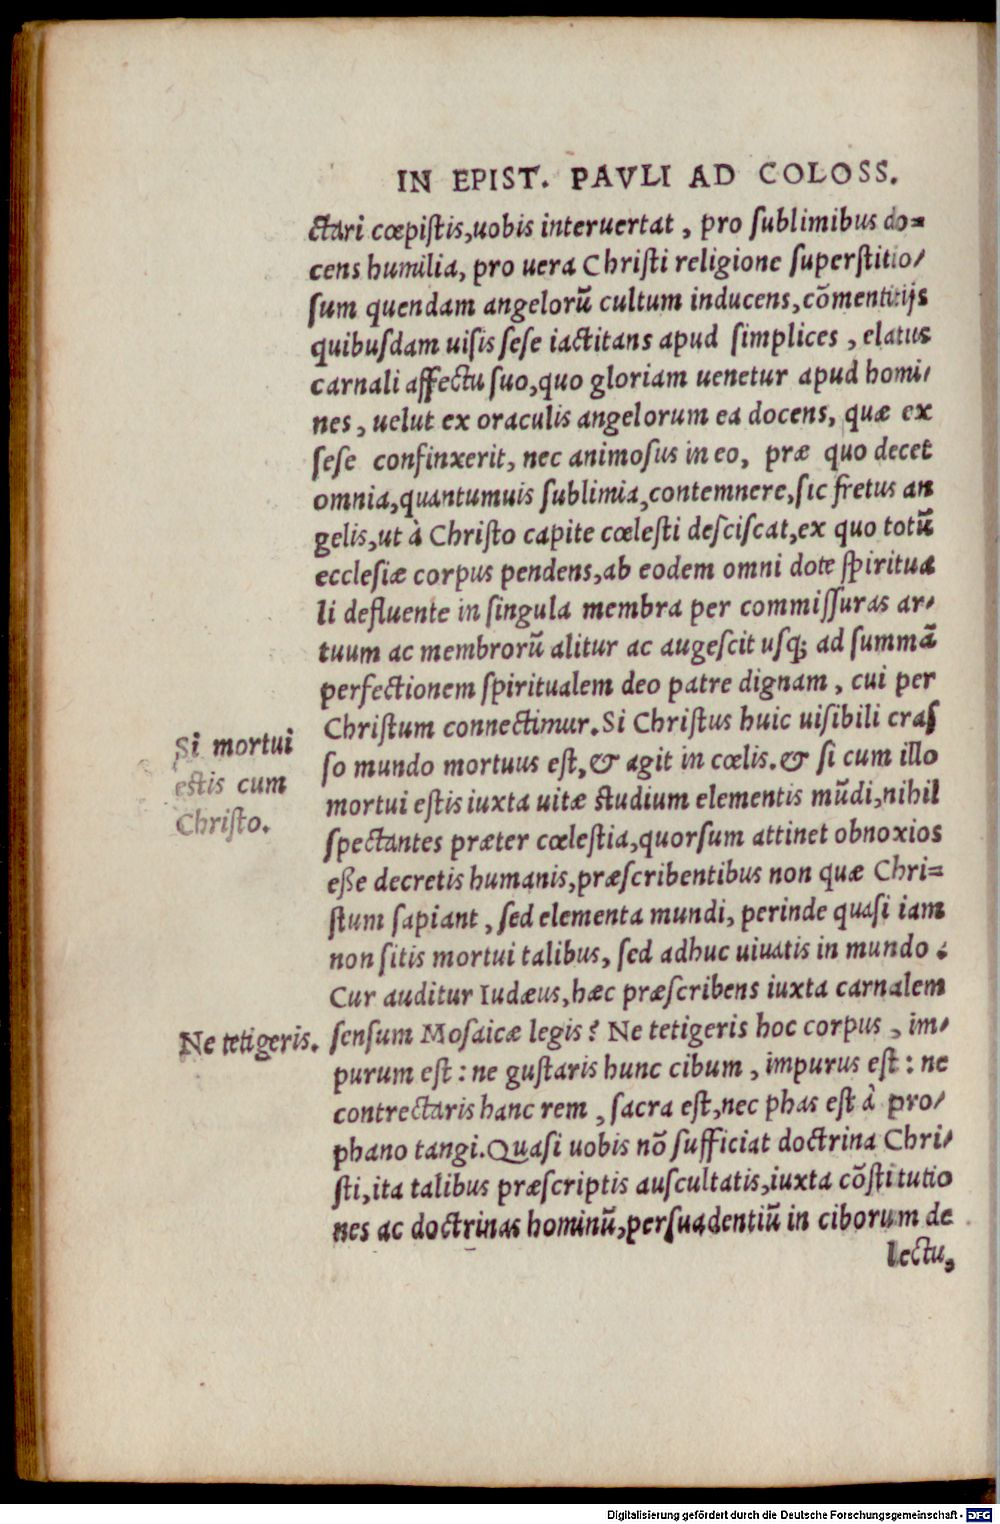 IN EPIST. PAVLI AD COLOSS.
ctari cœpistis,uobis interuertat, pro sublimibus do=
cens humilia, pro uera Christi religione superstitio/
sum quendam angelorũ cultum inducens,cõmentitijs
quibusdam uisis sese iactitans apud simplices, elatus
carnali affectu suo,quo gloriam uenetur apud homi/
nes, uelut ex oraculis angelorum ea docens, quæ ex
sese confinxerit, nec animosus in eo, præ quo decet
omnia,quantumuis sublimia,contemnere,sic fretus an
gelis,ut à Christo capite cœlesti desciscat,ex quo totũ
ecclesiæ corpus pendens,ab eodem omni dote spiritua
li defluente in singula membra per commissuras ar/
tuum ac membrorũ alitur ac augescit usq; ad summã
perfectionem spiritualem deo patre dignam, cui per
Christum connectimur.Si Christus huic uisibili cras
Si mortui
estis cum
Christo.
so mundo mortuus est,& agit in cœlis.& si cum illo
mortui estis iuxta uitæ studium elementis mũdi,nihil
spectantes præter cœlestia,quorsum attinet obnoxios
eße decretis humanis,præscribentibus non quæ Chri=
stum sapiant, sed elementa mundi, perinde quasi iam
non sitis mortui talibus, sed adhuc uiuatis in mundo:
Cur auditur Iudæus,hæc præscribens iuxta carnalem
Ne tetigeris.
sensum Mosaicæ legis? Ne tetigeris hoc corpus, im/
purum est: ne gustaris hunc cibum, impurus est: ne
contrectaris hanc rem, sacra est,nec phas est à pro/
phano tangi.Quasi uobis nõ sufficiat doctrina Chri/
sti,ita talibus præscriptis auscultatis,iuxta cõstitutio
nes ac doctrinas hominũ,persuadentiũ in ciborum de
lectu,
Digitalisierung gefördert durch die Deutsche Forschungsgemeinschaft - DFG